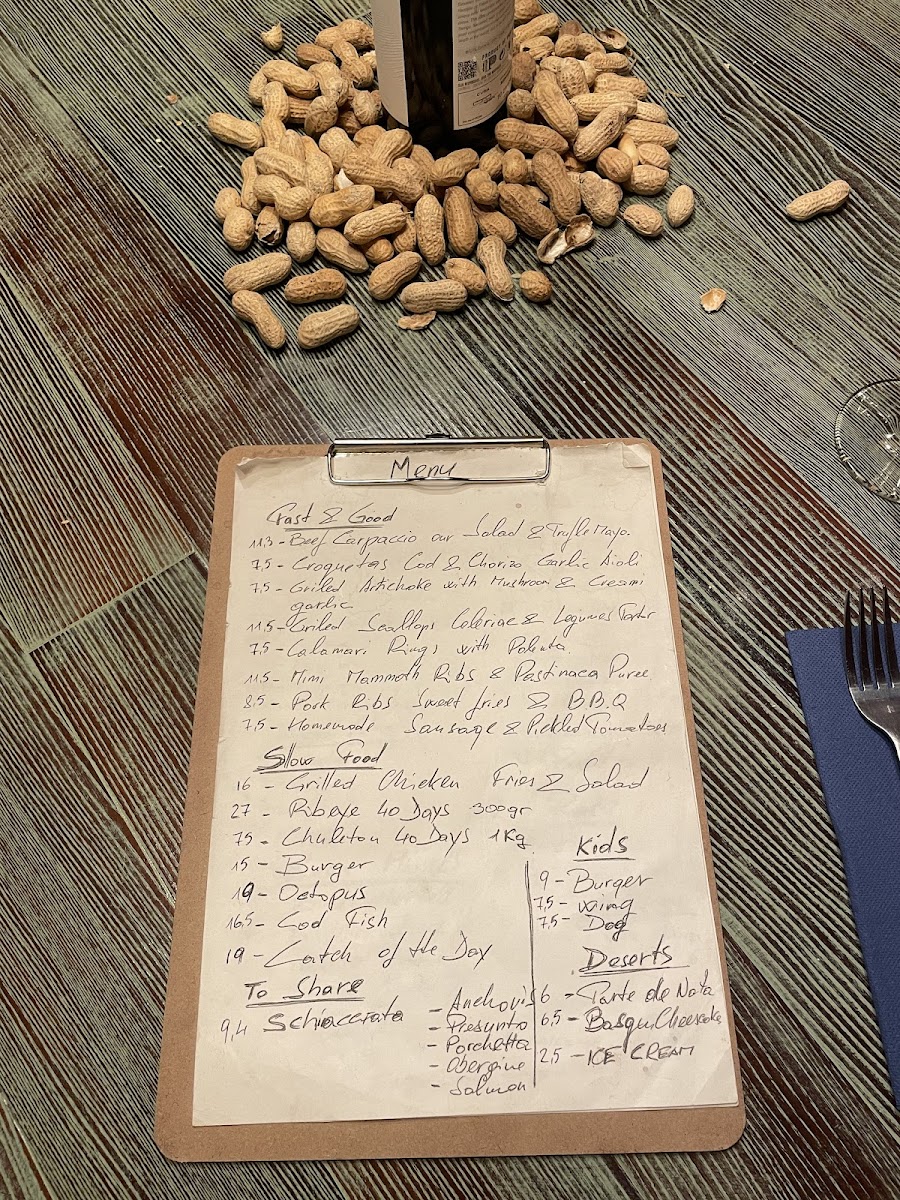 PRODUCT OF
Menu
Fast & Good
11,3 - Beef Carpaccio our Salad & Trufle Mayo.
7,5 - Croquetas Cod & Chorizo Garlic Aioli
7,5 - Griled Artichoke with Mushroom & Creami
garlic
11,5 - Griled Scallops Celeriac & Legumes Tartr
7,5 - Calamari Rings with Polenta.
11,5 - Mimi Mammoth Ribs & Pastinaca Puree
8,5 - Pork Ribs Sweet fries & B.B.Q
7,5 - Homemade Sausage & Pickled Tomatoes
Slow Food
16 - Grilled Chicken Fries & Salad
27 - Ribeye 40 Days 300gr
75 - Chuleton 40 Days 1Kg
15 - Burger
19 - Octopus
16,5 - Cod Fish
19 - Catch of the Day
To Share
9,4 Schiaccrata
- Anchovis
- Presunto
- Porchetta
- Obergine
- Salmon
Kids
9 - Burger
7,5 - wing
7,5 - Dog
Deserts
6 - Tarte de Nata
6,5 - Basqu Cheesecake
2,5 - ICE CREAM